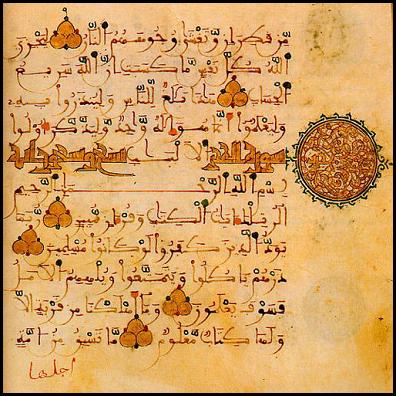 من قطران وتغشى وجوههم النار ليجزي
الله كل نفس ما كسبت إن الله سريع
الحساب هذا بلغ للناس ولينذروا به
وليعلموا أنما هو إله واحد وليذكر أولوا
سورة الحجر الالبب تسع وتسعون آية
بسم الله الرحمن الرحيم
الر تلك ءايت الكتب وقرءان مبين ربما
يود الذين كفروا لو كانوا مسلمين
ذرهم يأكلوا ويتمتعوا ويلههم الامل
فسوف يعلمون وما أهلكنا من قرية الا
ولها كتاب معلوم ما تسبق من أمة
أجلها